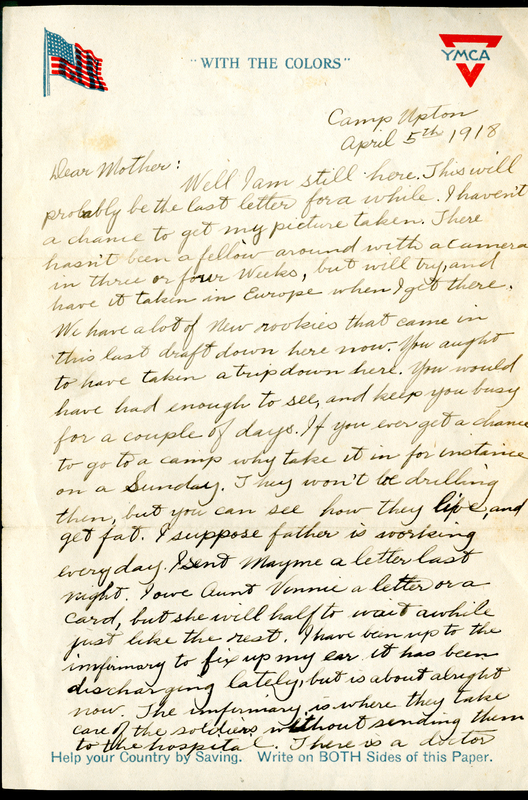 "WITH THE COLORS"
YMCA
Camp Upton
April 5th 1918
Dear Mother:
Well I am still here. This will
probably be the last letter for a while. I haven't
a chance to get my picture taken. There
hasn't been a fellow around with a camera
in three or four Weeks, but will try, and
have it taken in Europe when I get there.
We have a lot of New rookies that came in
this last draft down here now. You aught
to have taken a trip down here. You would
have had enough to see, and keep you busy
for a couple of days. If you ever get a chance
to go to a camp why take it in for instance
on a Sunday. They won't be drilling
then, but you can see how they live, and
get fat. I suppose father is working
every day. I sent Mayme a letter last
night. I owe Aunt Vinnie a letter or a
card, but she will half to wait awhile
just like the rest. I have been up to the
imfirmary to fix up my ear it has been
discharging lately, but is about alright
now. The imfirmary is where they take
care of the soldiers without sending them
to the hospital. There is a doctor
Help your Country by Saving. Write on BOTH Sides of this Paper.